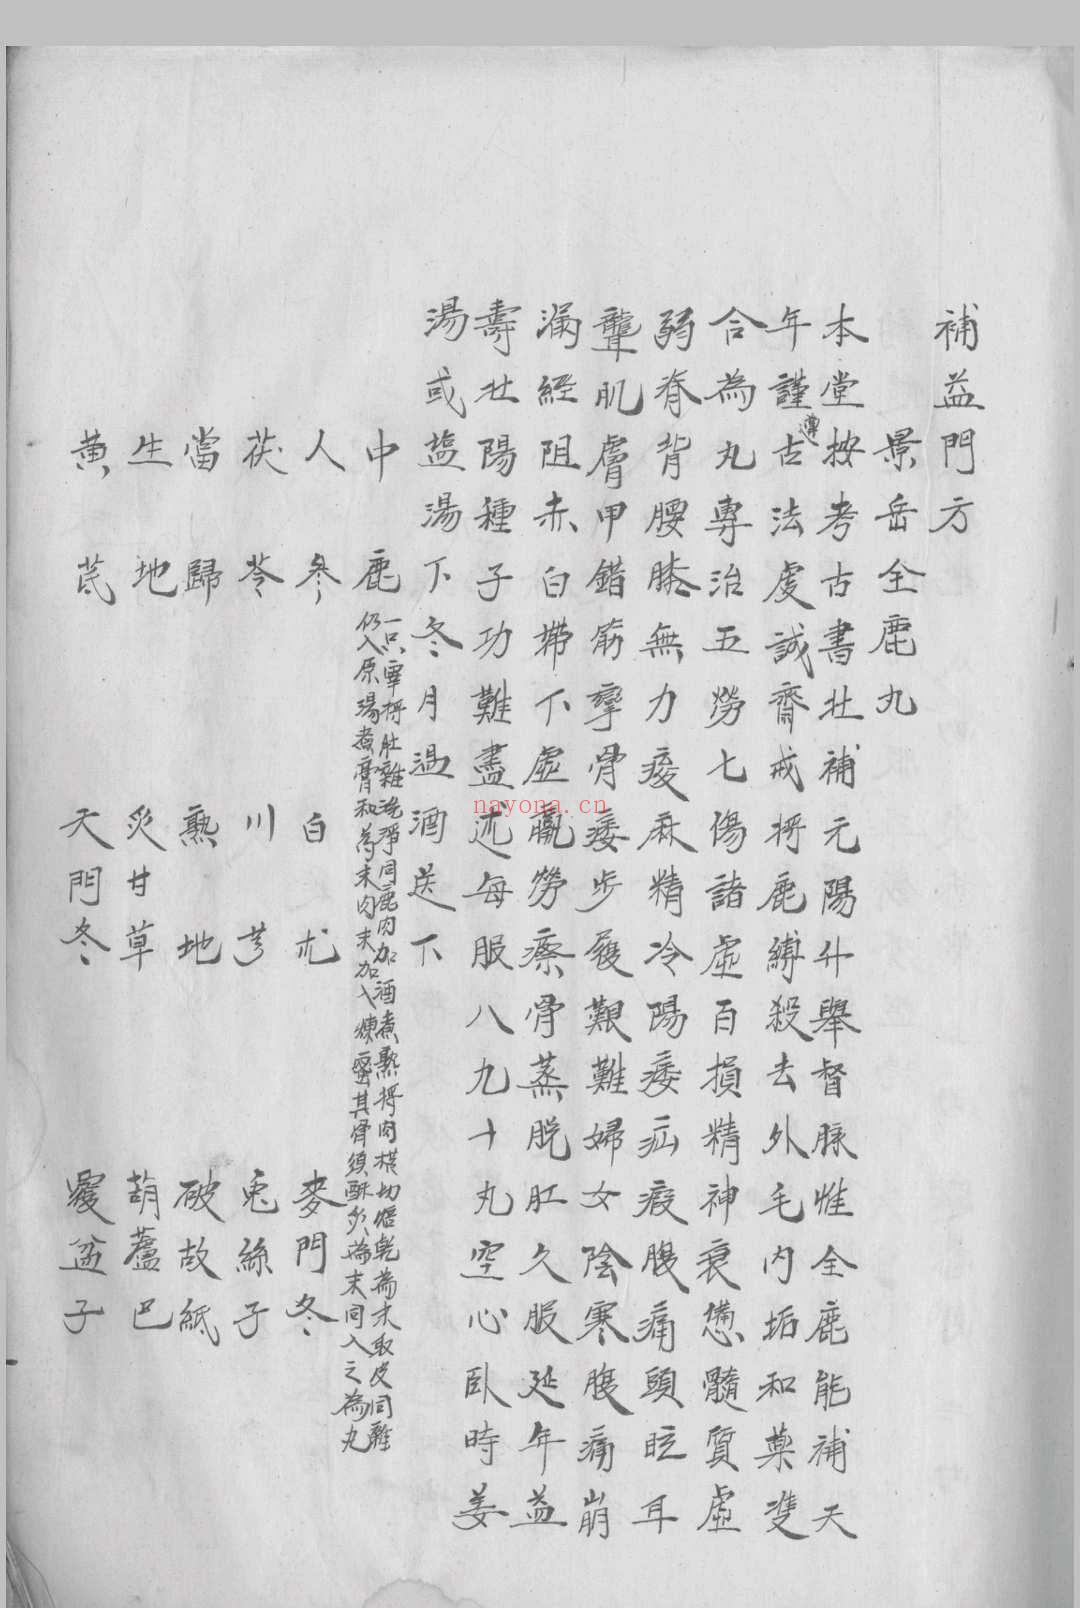 補益門方
景岳全鹿丸
本堂按考古書壯補元陽升舉督脉惟全鹿能補天
年謹遵古法虔誠齋戒將鹿縛殺去外毛內垢和藥雙
合為丸專治五勞七傷諸虛百損精神衰憊髓質虛
弱脊背腰膝無力痠麻精冷陽痿疝瘕腹痛頭眩耳
聾肌膚甲錯筋攣骨痿步履艱難婦女陰寒腹痛崩
漏經阻赤白帶下虛羸勞瘵骨蒸脫肛久服延年益
壽壯陽種子功難盡述每服八九十丸空心臥時姜
湯或塩湯下冬月溫酒送下
中鹿一只宰將肚雜洗淨同鹿肉加酒煮熟將肉橫切焙乾為末取皮同雜
仍入原湯煮膏和為末肉末加入煉蜜其骨須酥炙為末同入之為丸
人參 白朮 麥門冬
茯苓 川芎 兎絲子
當歸 熟地 破故紙
生地 炙甘草 葫蘆巴
黃芪 天門冬 覆盆子
nayona.cn